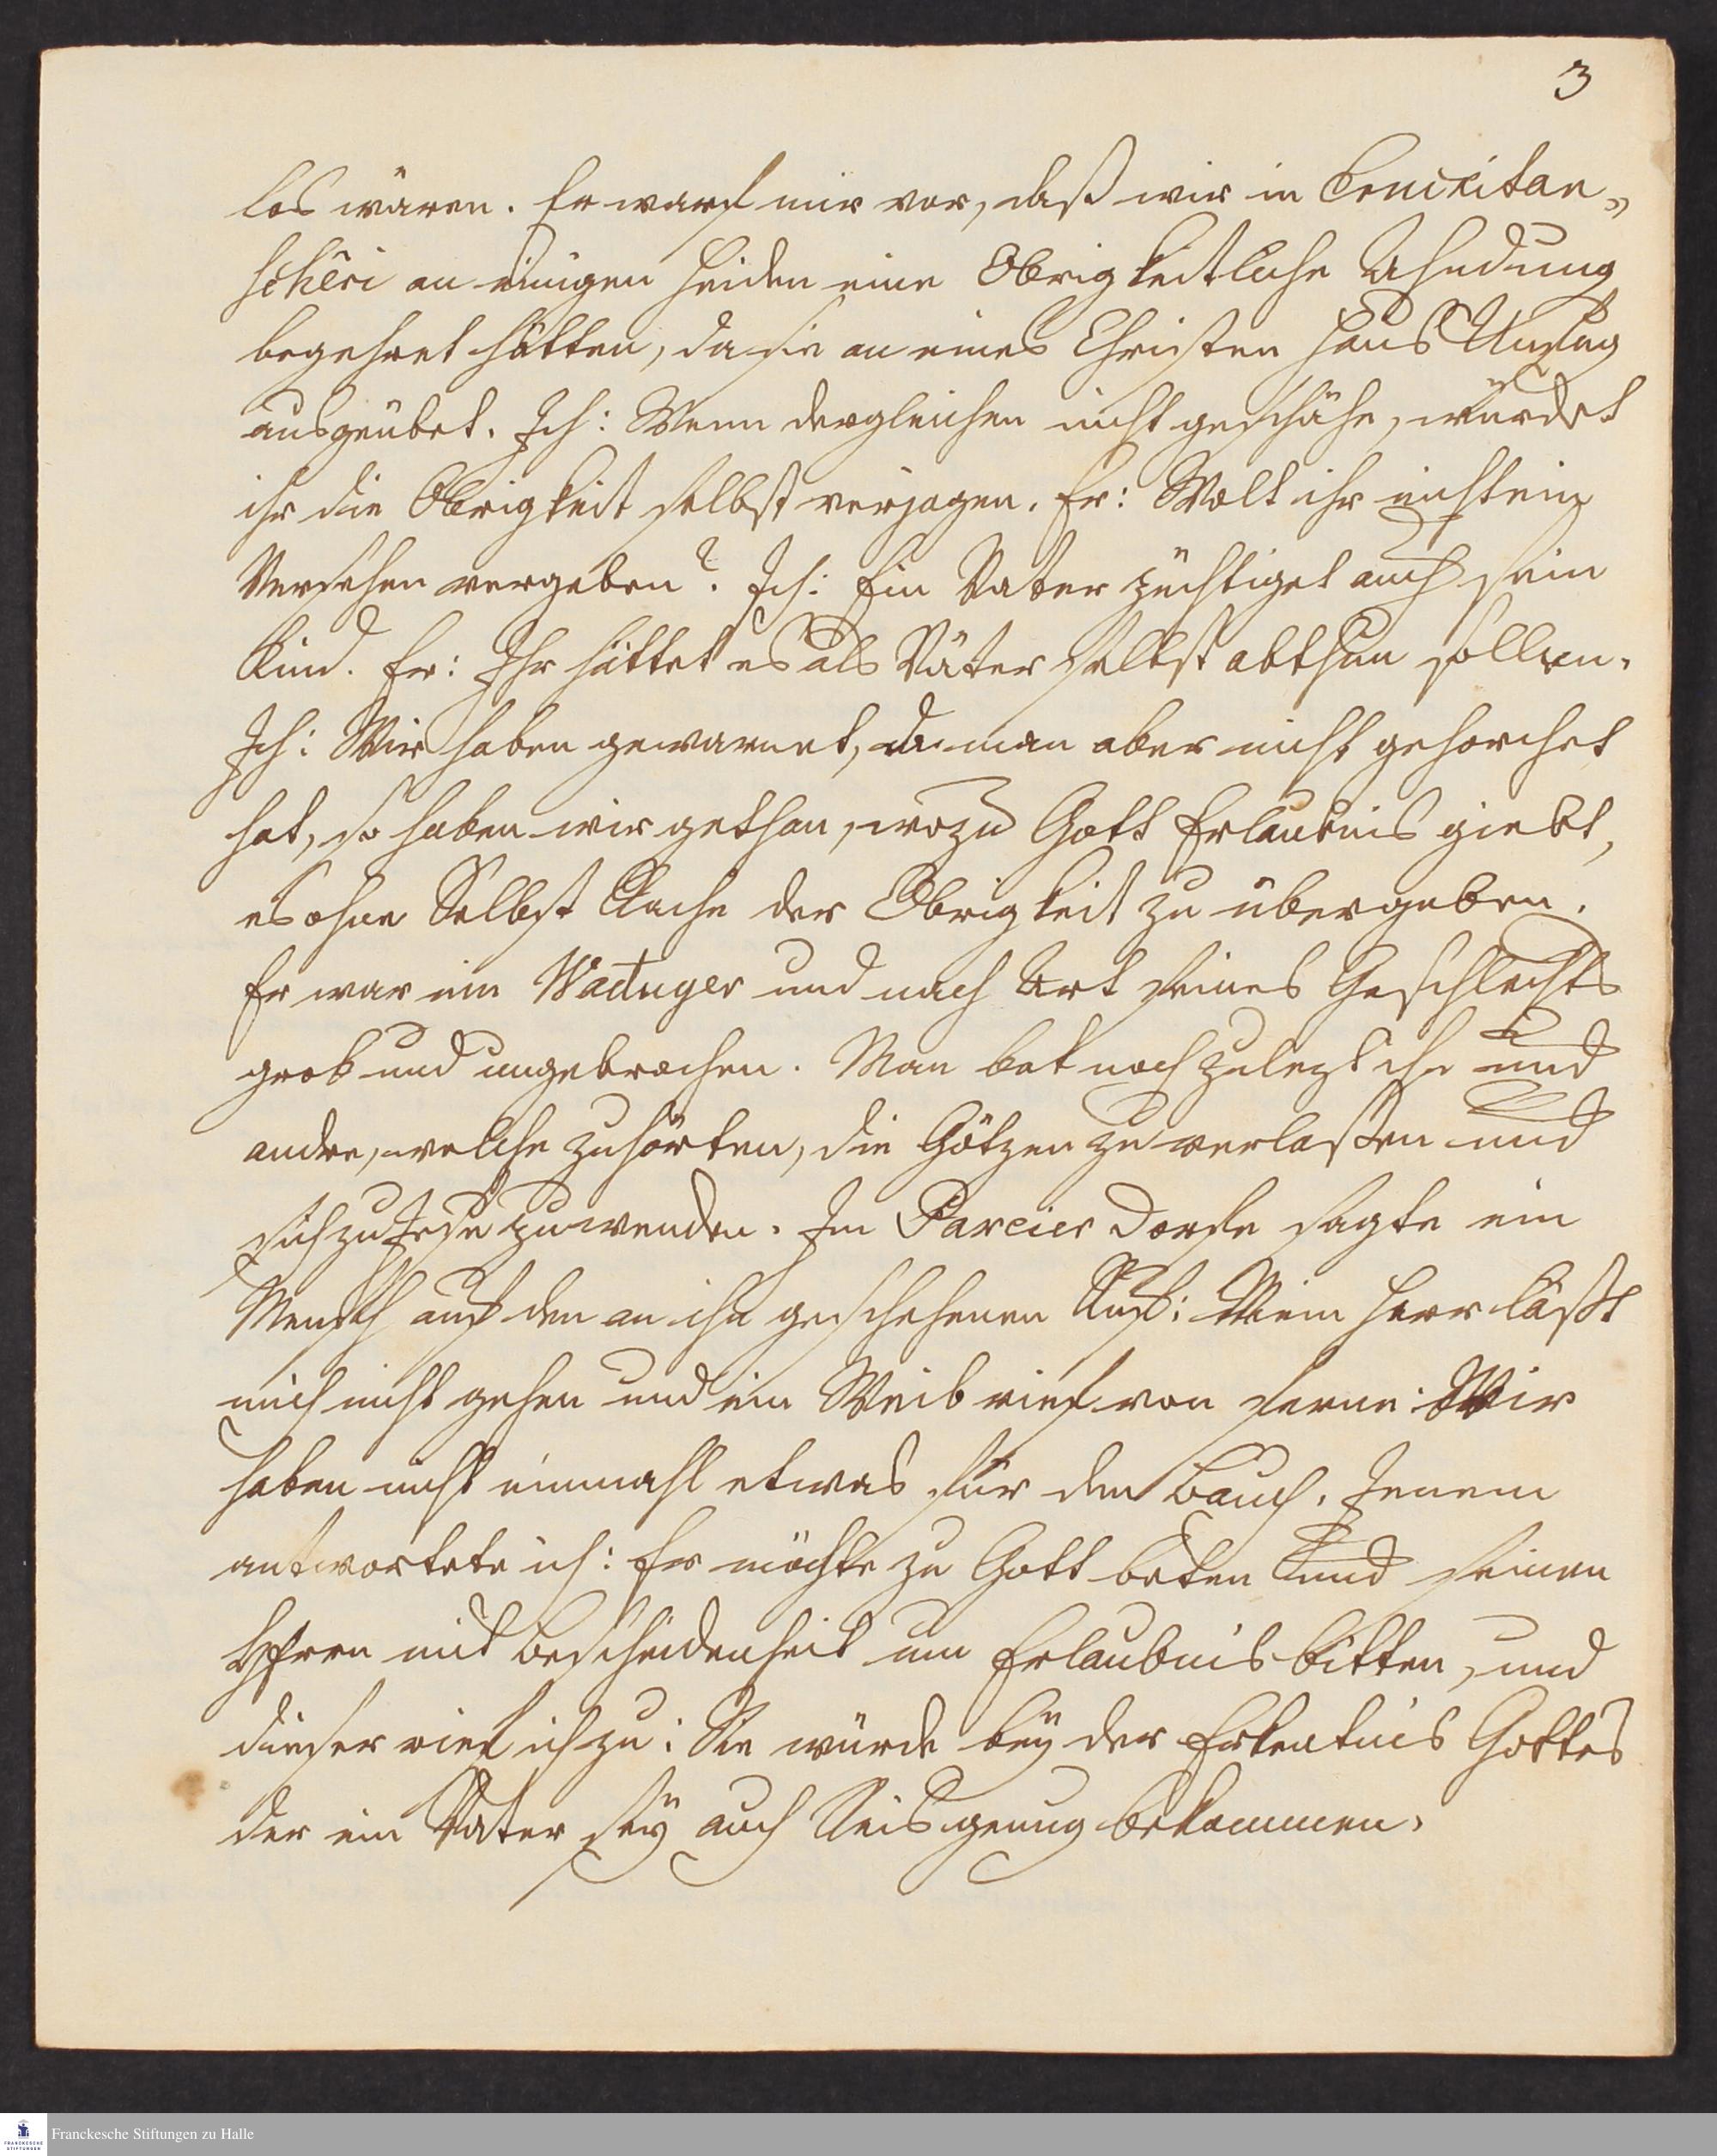 3
los wären. Er warf mir vor, daß wir in Comikitan„
schêri an einigen Heiden eine Obrigkeitliche Ahndung
begehret hätten, da sie an eines Christen Haus Unfug
ausgeübet. Ich: Wenn dergleichen nicht geschähe, würdet
ihr die Obrigkeit selbst verjagen. Er: Wolt ihr nicht ein
Versehen vergeben? Ich: Ein Vater züchtiget auch sein
Kind. Er: Ihr hättet es als Väter selbst abthun sollen.
Ich: Wir haben gewarnet, da man aber nicht gehorchet
hat, so haben wir gethan, wozu Gott Erlaubnis giebt,
es ohne Selbst Rache der Obrigkeit zu übergeben.
Er war ein Waduger und nach Art seines Geschlechts
grob und ungebrochen. Man bat noch zulezt ihn und
andre, welche zuhörten, die Götzen zu verlaßen und
sich zu Jesu zu wenden. Im Pareier Dorfe sagte ein
Mensch auf den an ihn geschehenen Ruf: Mein Herr läßt
mich nicht gehen und ein Weib rief von ferne: Wir
haben nicht einmahl etwas für den Bauch. Jenem
antwortete ich: Er möchte zu Gott beten und seinen
Herrn mit Bescheidenheit um Erlaubnis bitten, und
dieser rief ich zu: Sie würde bey der Erkentnis Gottes
der ein Vater sey auch Reis genug bekommen.
Franckesche Stiftungen zu Halle